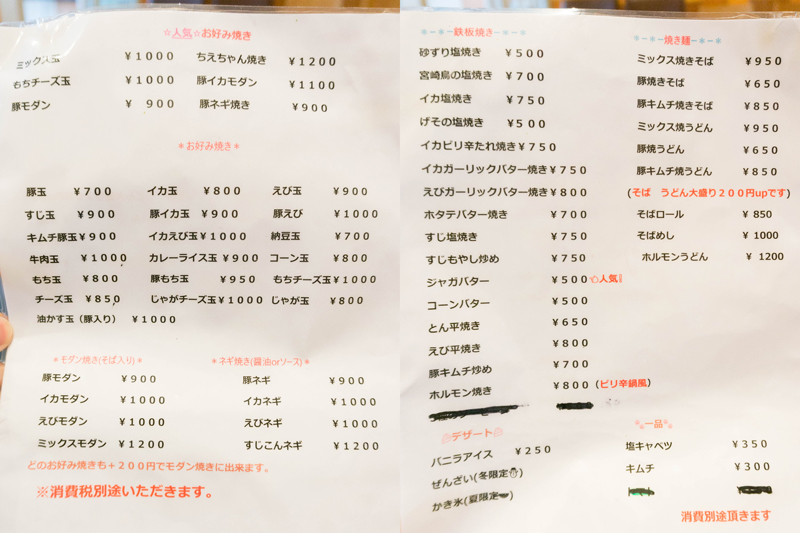 ☆人気☆お好み焼き
ミックス玉 ¥1000 ちえちゃん焼き ¥1200
もちチーズ玉 ¥1000 豚イカモダン ¥1100
豚モダン ¥ 900 豚ネギ焼き ¥900
＊お好み焼き＊
豚玉 ¥700 イカ玉 ¥800 えび玉 ¥900
すじ玉 ¥900 豚イカ玉 ¥900 豚えび ¥1000
キムチ豚玉 ¥900 イカえび玉 ¥1000 納豆玉 ¥700
牛肉玉 ¥1000 カレーライス玉 ¥900 コーン玉 ¥800
もち玉 ¥800 豚もち玉 ¥950 もちチーズ玉 ¥1000
チーズ玉 ¥850 じゃがチーズ玉 ¥1000 じゃが玉 ¥800
油かす玉（豚入り） ¥1000
＊モダン焼き(そば入り)＊
豚モダン ¥900
イカモダン ¥1000
えびモダン ¥1000
ミックスモダン ¥1200
＊ネギ焼き(醤油orソース)＊
豚ネギ ¥900
イカネギ ¥1000
えびネギ ¥1000
すじこんネギ ¥1200
どのお好み焼きも＋200円でモダン焼きに出来ます。
※消費税別途いただきます。
＊－＊－鉄板焼き－＊－＊
砂ずり塩焼き ¥500
宮崎鳥の塩焼き ¥700
イカ塩焼き ¥750
げその塩焼き ¥500
イカピリ辛たれ焼き ¥750
イカガーリックバター焼き ¥750
えびガーリックバター焼き ¥800
ホタテバター焼き ¥700
すじ塩焼き ¥750
すじもやし炒め ¥750
ジャガバター ¥500 人気
コーンバター ¥500
とん平焼き ¥650
えび平焼き ¥800
豚キムチ炒め ¥700
ホルモン焼き ¥800（ピリ辛鍋風）
デザート
バニラアイス ¥250
ぜんざい(冬限定)
かき氷(夏限定)
＊－＊－焼き麺－＊－＊
ミックス焼きそば ¥950
豚焼きそば ¥650
豚キムチ焼きそば ¥850
ミックス焼うどん ¥950
豚焼うどん ¥650
豚キムチ焼うどん ¥850
(そば うどん大盛り200円upです)
そばロール ¥ 850
そばめし ¥ 1000
ホルモンうどん ¥ 1200
一品
塩キャベツ ¥350
キムチ ¥300
消費別途頂きます